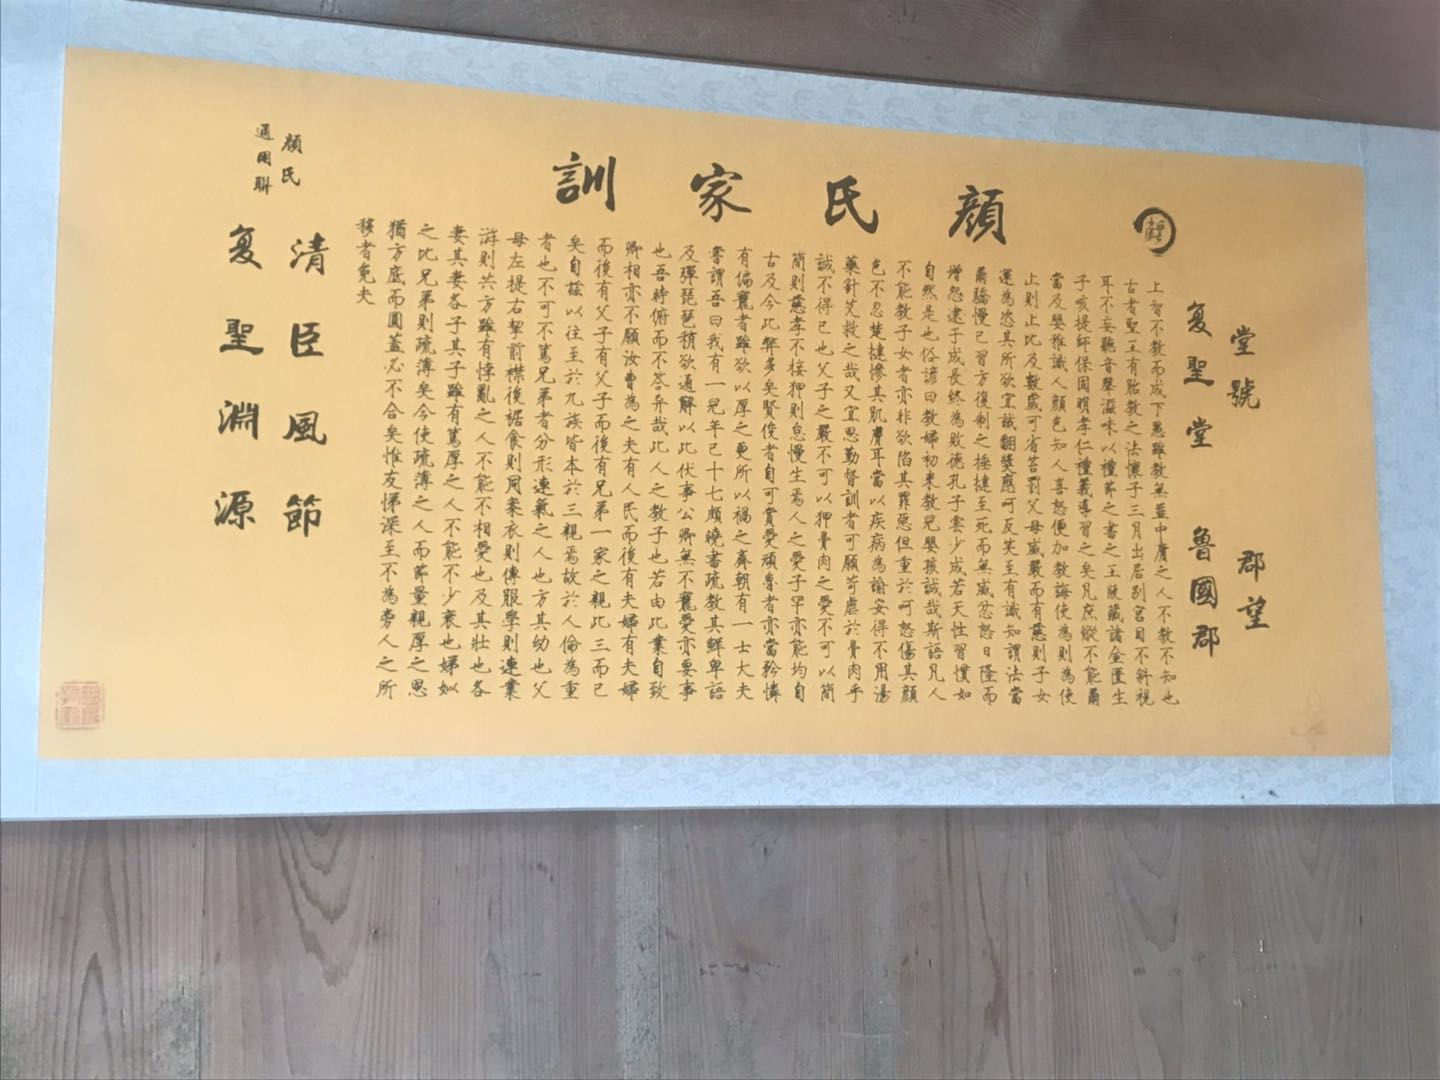 顏氏家訓
顏
堂號 郡望
复聖堂 魯國郡
上智不教而成下愚雖教無益中庸之人不教不知也
古者聖王有胎教之法懷子三月出居別宮目不斜視
耳不妄聽音聲滋味以禮節之書之玉版藏諸金匱生
子孩提師保固明孝仁禮義導習之矣凡庶縱不能爾
當及嬰稚識人顏色知人喜怒便加教誨使為則為使
止則止比及數歲可省笞罰父母威嚴而有慈則子女
運為恣其所欲宜誡翻獎應呵反笑至有識知謂法當
爾驕慢已習方復制之捶撻至死而無威忿怒日隆而
增怨逮于成長終為敗德孔子雲少成若天性習慣如
自然是也俗諺曰教婦初來教兒嬰孩誠哉斯語凡人
不能教子女者亦非欲陷其罪惡但重於呵怒傷其顏
色不忍楚撻慘其肌膚耳當以疾病為諭安得不用湯
藥針艾救之哉又宜思勤督訓者可願苛虐於骨肉乎
誠不得已也父子之嚴不可以狎骨肉之愛不可以簡
簡則慈孝不接狎則怠慢生焉人之愛子罕亦能均自
古及今此弊多矣賢俊者自可賞愛頑魯者亦當矜憐
有偏寵者雖欲以厚之更所以禍之齊朝有一士大夫
嘗謂吾曰我有一兒年已十七頗曉書疏教其鮮卑語
及彈琵琶稍欲通解以此伏事公卿無不寵愛亦要事
也吾時俯而不答异哉此人之教子也若由此業自致
卿相亦不願汝曹為之夫有人民而後有夫婦有夫婦
而後有父子有父子而後有兄弟一家之親此三而已
矣自茲以往至於九族皆本於三親焉故於人倫為重
者也不可不篤兄弟者分形連氣之人也方其幼也父
母左提右挈前襟後裾食則同案衣則傳服學則連業
游則共方雖有悖亂之人不能不相愛也及其壯也各
妻其妻各子其子雖有篤厚之人不能不少衰也娣姒
之比兄弟則疏薄矣今使疏薄之人而節量親厚之恩
猶方底而圓蓋必不合矣惟友悌深至不為旁人之所
移者免夫
顏氏
通用聯
清臣風節
复聖淵源